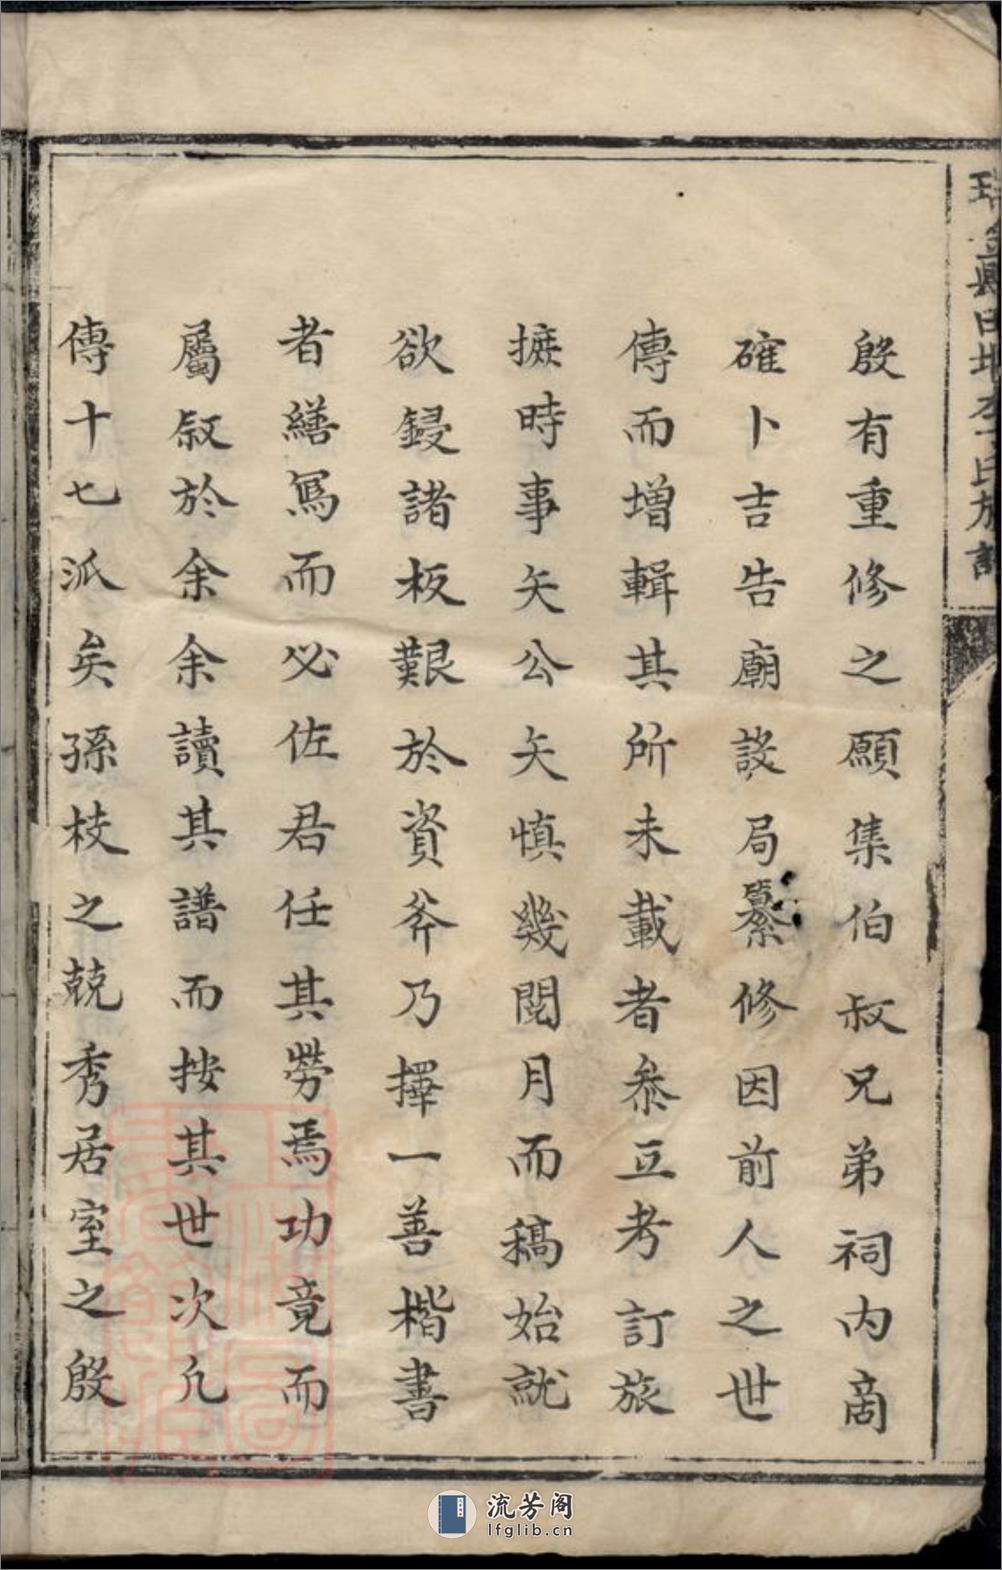 殷有重修之願集伯叔兄弟祠内商
確卜吉告廟設局纂修因前人之世
傳而增輯其所未載者叅互考訂旅
摭時事矢公矢慎幾閱月而稿始就
欲鋟諸板艱於資斧乃擇一善楷書
者繕寫而必佐君任其勞焉功竟而
屬叙於余余讀其譜而按其世次凢
傳十七派矣孫枝之兢秀居室之殷
流芳阁
lfglib.cn